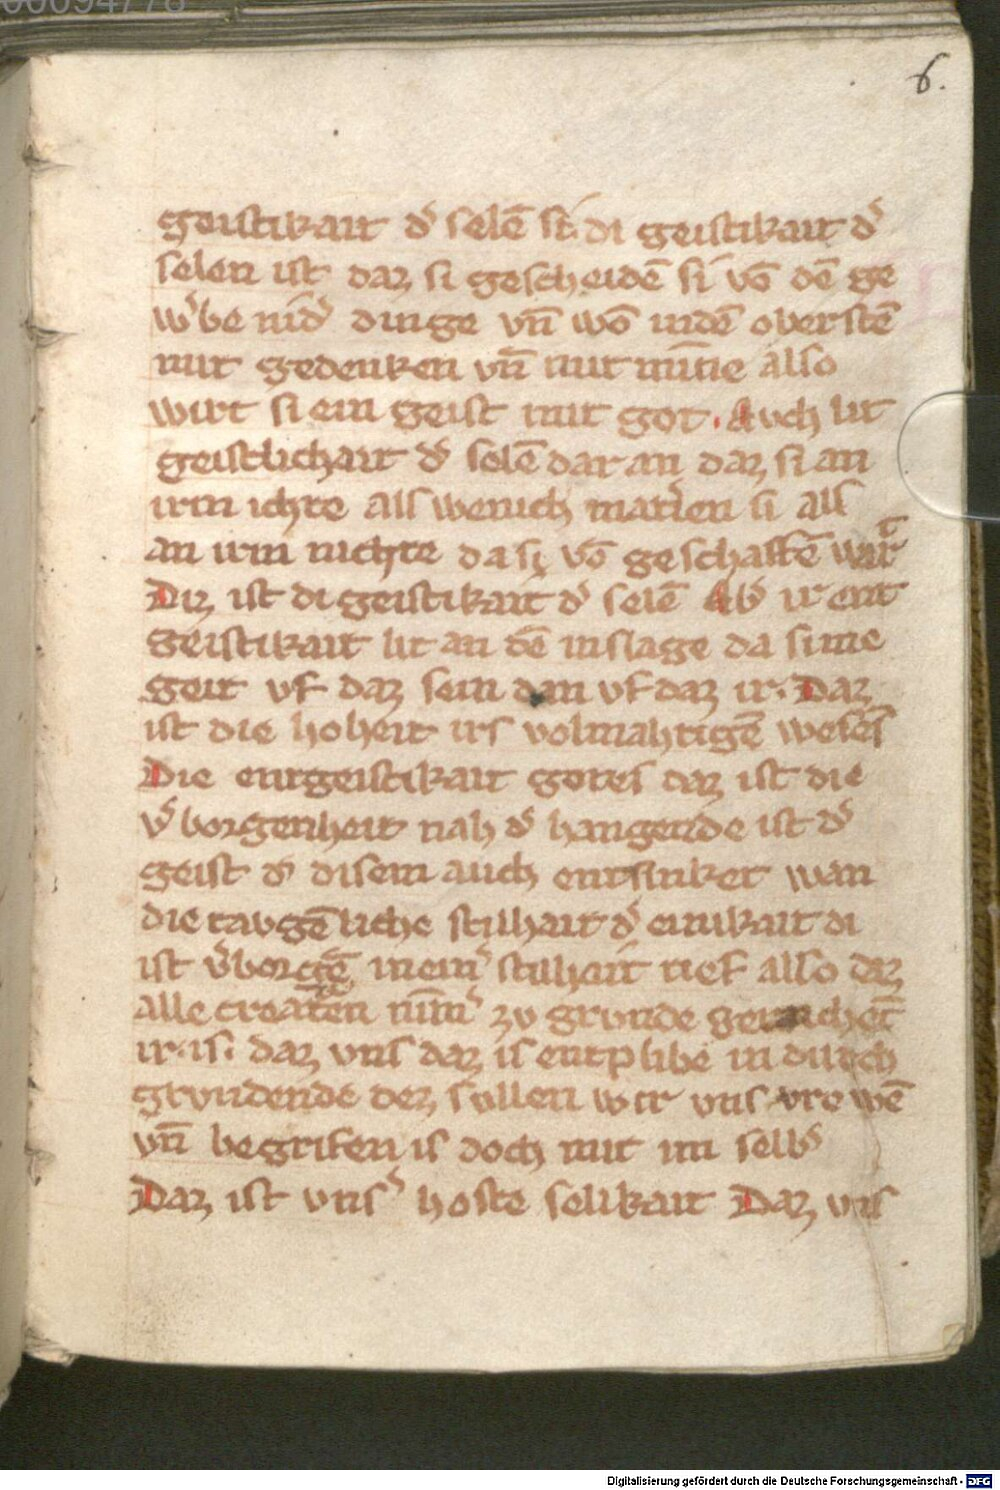 6.
geistikait d᷑ selē si. di geistikait d᷑
selen ist daz si gescheidē si vō dē ge
w᷑be nid᷑ dinge vn̄ wō indē oberstē
mit gedenken vn̄ mit mīne also
wirt si ein geist mit got. Avch lit
geistlichait d᷑ selē dar an daz si an
irm ichte als wenich mat᷑ien si als
an irm nichte da si vō geschaffē wart
Diz ist di geistikait d᷑ selē Ab᷑ ir ent
geistikait lit an dē inslage da si me
geit vf daz sein dan vf daz ir. Daz
ist die hoheit irs volmahtigē wesēs
Die entgeistikait gotes daz ist die
v᷑borgenheit nah d᷑ hangende ist d᷑
geist d᷑ disem auch entsinket wan
die tavgēliche stilhait d᷑ einikait di
ist v᷑borgē in ein᷑ stilhait tief also dez
alle creatēn nīm᷑ zv grvnde
ir. is. daz vns daz is entplibe in durch
grvndende dez sullen wir vns vrewē
vn̄ begrifen is doch mit im selb᷑
Daz ist vns᷑ hoste selikait Daz vns
Digitalisierung gefördert durch die Deutsche Forschungsgemeinschaft - DFG